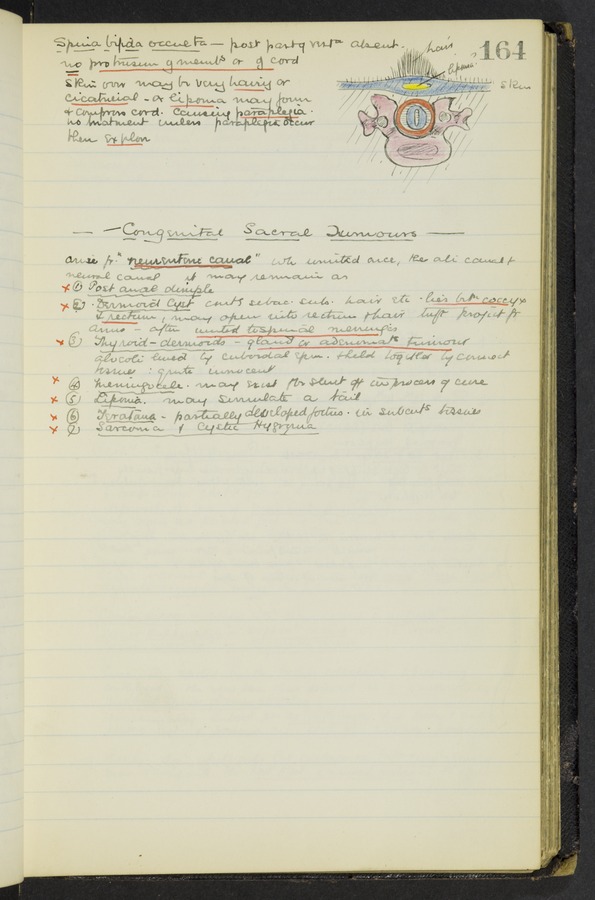 164
Spina bifida occulta — post part of vertª absent.
no protrusion of ments or of cord
Skin over may be very hairy or
cicatricial - or lipoma may form
& compress cord. Causing paraplegia.
no treatment unless paraplegia occur
then explore
hair
lipoma
skin
— Congenital Sacral Tumours —
arise fr. "neurenteric canal" wh united once, the ali canal &
neural canal it may remain as
x ① Post anal dimple
x ②. Dermoid Cyst conts sebac. subs. hair etc. lies btn coccyx
& rectum, may open into rectum & hair tuft project fr
anus - often united to spinal meninges
x ③ Thyroid-dermoids - gland or adenomats tumour
lined by cuboidal epm. held together by connect
tissue : quite innocent
x ④ Meningocele. may exist in process of cure
x ⑤ Lipoma. may simulate a tail
x ⑥ Teratoma - partially developed foetus. in subcuts tissue
x ⑦ Sarcoma & Cystic Hygroma